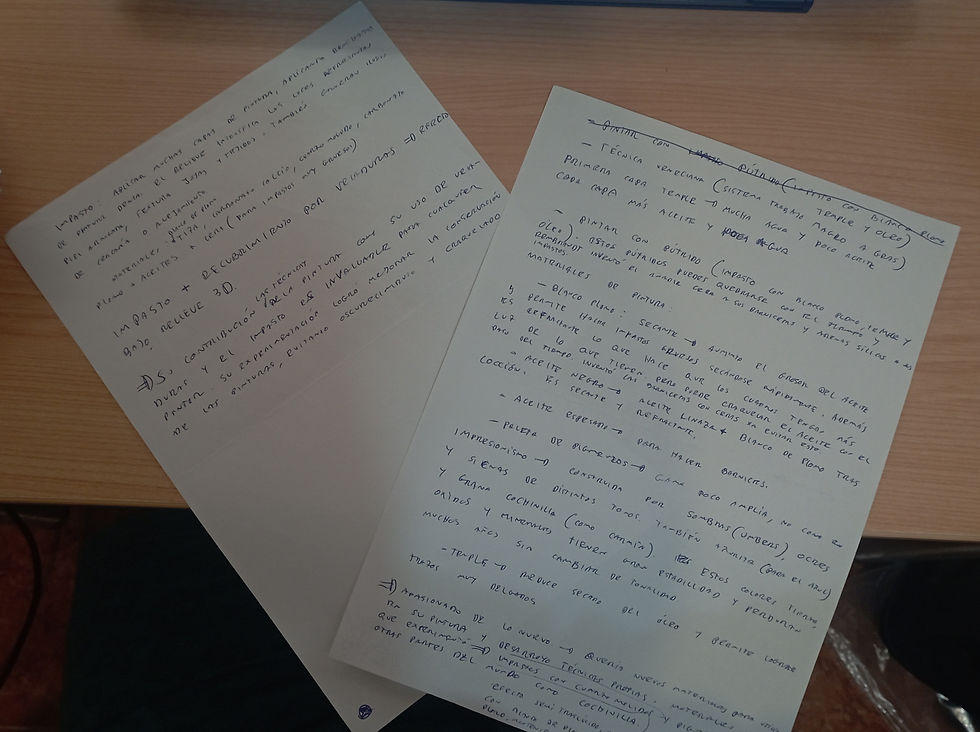 IMPASTO: APLICAR MUCHAS CAPAS DE PINTURA, APLICANDO
DE EMPUJE DENSA. EL RELIEVE INTENSIFICA LAS LUCES
PIEL ARRUGADA, TEXTURA JOYAS Y TEJIDOS. TAMBIÉN
DE CERCANÍA O ALEJAMIENTO.
MATERIALES: BLANCO DE PLOMO
PLOMO + ACEITES + CERA (PARA IMPASTOS MUY GRUESOS)
IMPASTO + RECUBRIMIENTO POR VELADURAS ⇒ EFECTO
BAJO RELIEVE 3D.
⇒ SU CONTRIBUCIÓN A LAS TÉCNICAS DE LA PINTURA COMO SU USO DE VELA-
DURAS Y EL IMPASTO ES INVALUABLE PARA CUALQUIER
PINTOR. SU EXPERIMENTACIÓN LOGRÓ MEJORAR LA CONSERVACIÓN
DE LAS PINTURAS, EVITANDO OSCURECIMIENTO Y CRAQUELADO
PINTAR CON PÚTRIDO (IMPASTO CON BLANCO PLOMO
- TÉCNICA VENECIANA (SISTEMA TRABAJO TEMPLE Y ÓLEO)
PRIMERA CAPA TEMPLE → MUCHA AGUA Y POCO ACEITE MAGRO A GRAS)
CADA CAPA MÁS ACEITE Y POCA AGUA
- PINTAR CON PÚTRIDO (IMPASTO CON BLANCO PLOMO, TEMPLE Y
ÓLEO). ESTOS PÚTRIDOS PUEDES QUEBRARSE CON EL TIEMPO Y
REMBRANDT INVENTÓ EL AÑADIR CERA A SUS BARNICETAS Y ADEMÁS SÍLICE A LOS
IMPASTOS.
MATERIALES DE PINTURA:
- BLANCO PLOMO: SECANTE → AUMENTA EL GROSOR DEL ACEITE
Y PERMITE HACER IMPASTOS GRUESOS SECÁNDOSE RÁPIDAMENTE. ADEMÁS
ES REFRACTANTE LO QUE HACE QUE LOS CUADROS TENGAN MÁS
LUZ DE LO QUE TIENEN PERO PUEDE CRAQUELAR EL ACEITE CON EL
PASO DEL TIEMPO. INVENTÓ LAS BARNICETAS CON CERAS PARA EVITAR ESTO
- ACEITE NEGRO → ACEITE LINAZA + BLANCO DE PLOMO TRAS
COCCIÓN. ES SECANTE Y REFRACTANTE.
- ACEITE ESPESADO → PARA HACER BARNICES.
- PALETA DE PIGMENTOS → GAMA POCO AMPLIA, NO COMO EN
IMPRESIONISMO → CONSTRUIDA POR SOMBRAS (UMBERS), OCRES
Y SIENAS DE DISTINTOS TONOS. TAMBIÉN AZURITA (PARA EL AZUL)
Y GRANA COCHINILLA (COMO CARMÍN). ESTOS COLORES TIERRAS,
ÓXIDOS Y MINERALES TIENEN GRAN ESTABILIDAD Y PERDURAN
MUCHOS AÑOS SIN CAMBIAR DE TONALIDAD
- TEMPLE → REDUCE SECADO DEL ÓLEO Y PERMITE LOGRAR
TRAZOS MUY DELGADOS
⇒ APASIONADO DE LO NUEVO → QUERÍA NUEVOS MATERIALES PARA
EN SU PINTURA Y DESARROLLO TÉCNICAS PROPIAS. MATERIALES
QUE EXPERIMENTÓ ⇒ IMPASTOS CON CUARZO MOLIDO Y
OTRAS PARTES DEL MUNDO COMO COCHINILLA)
EFECTO SEMITRASLÚCIDO
CON